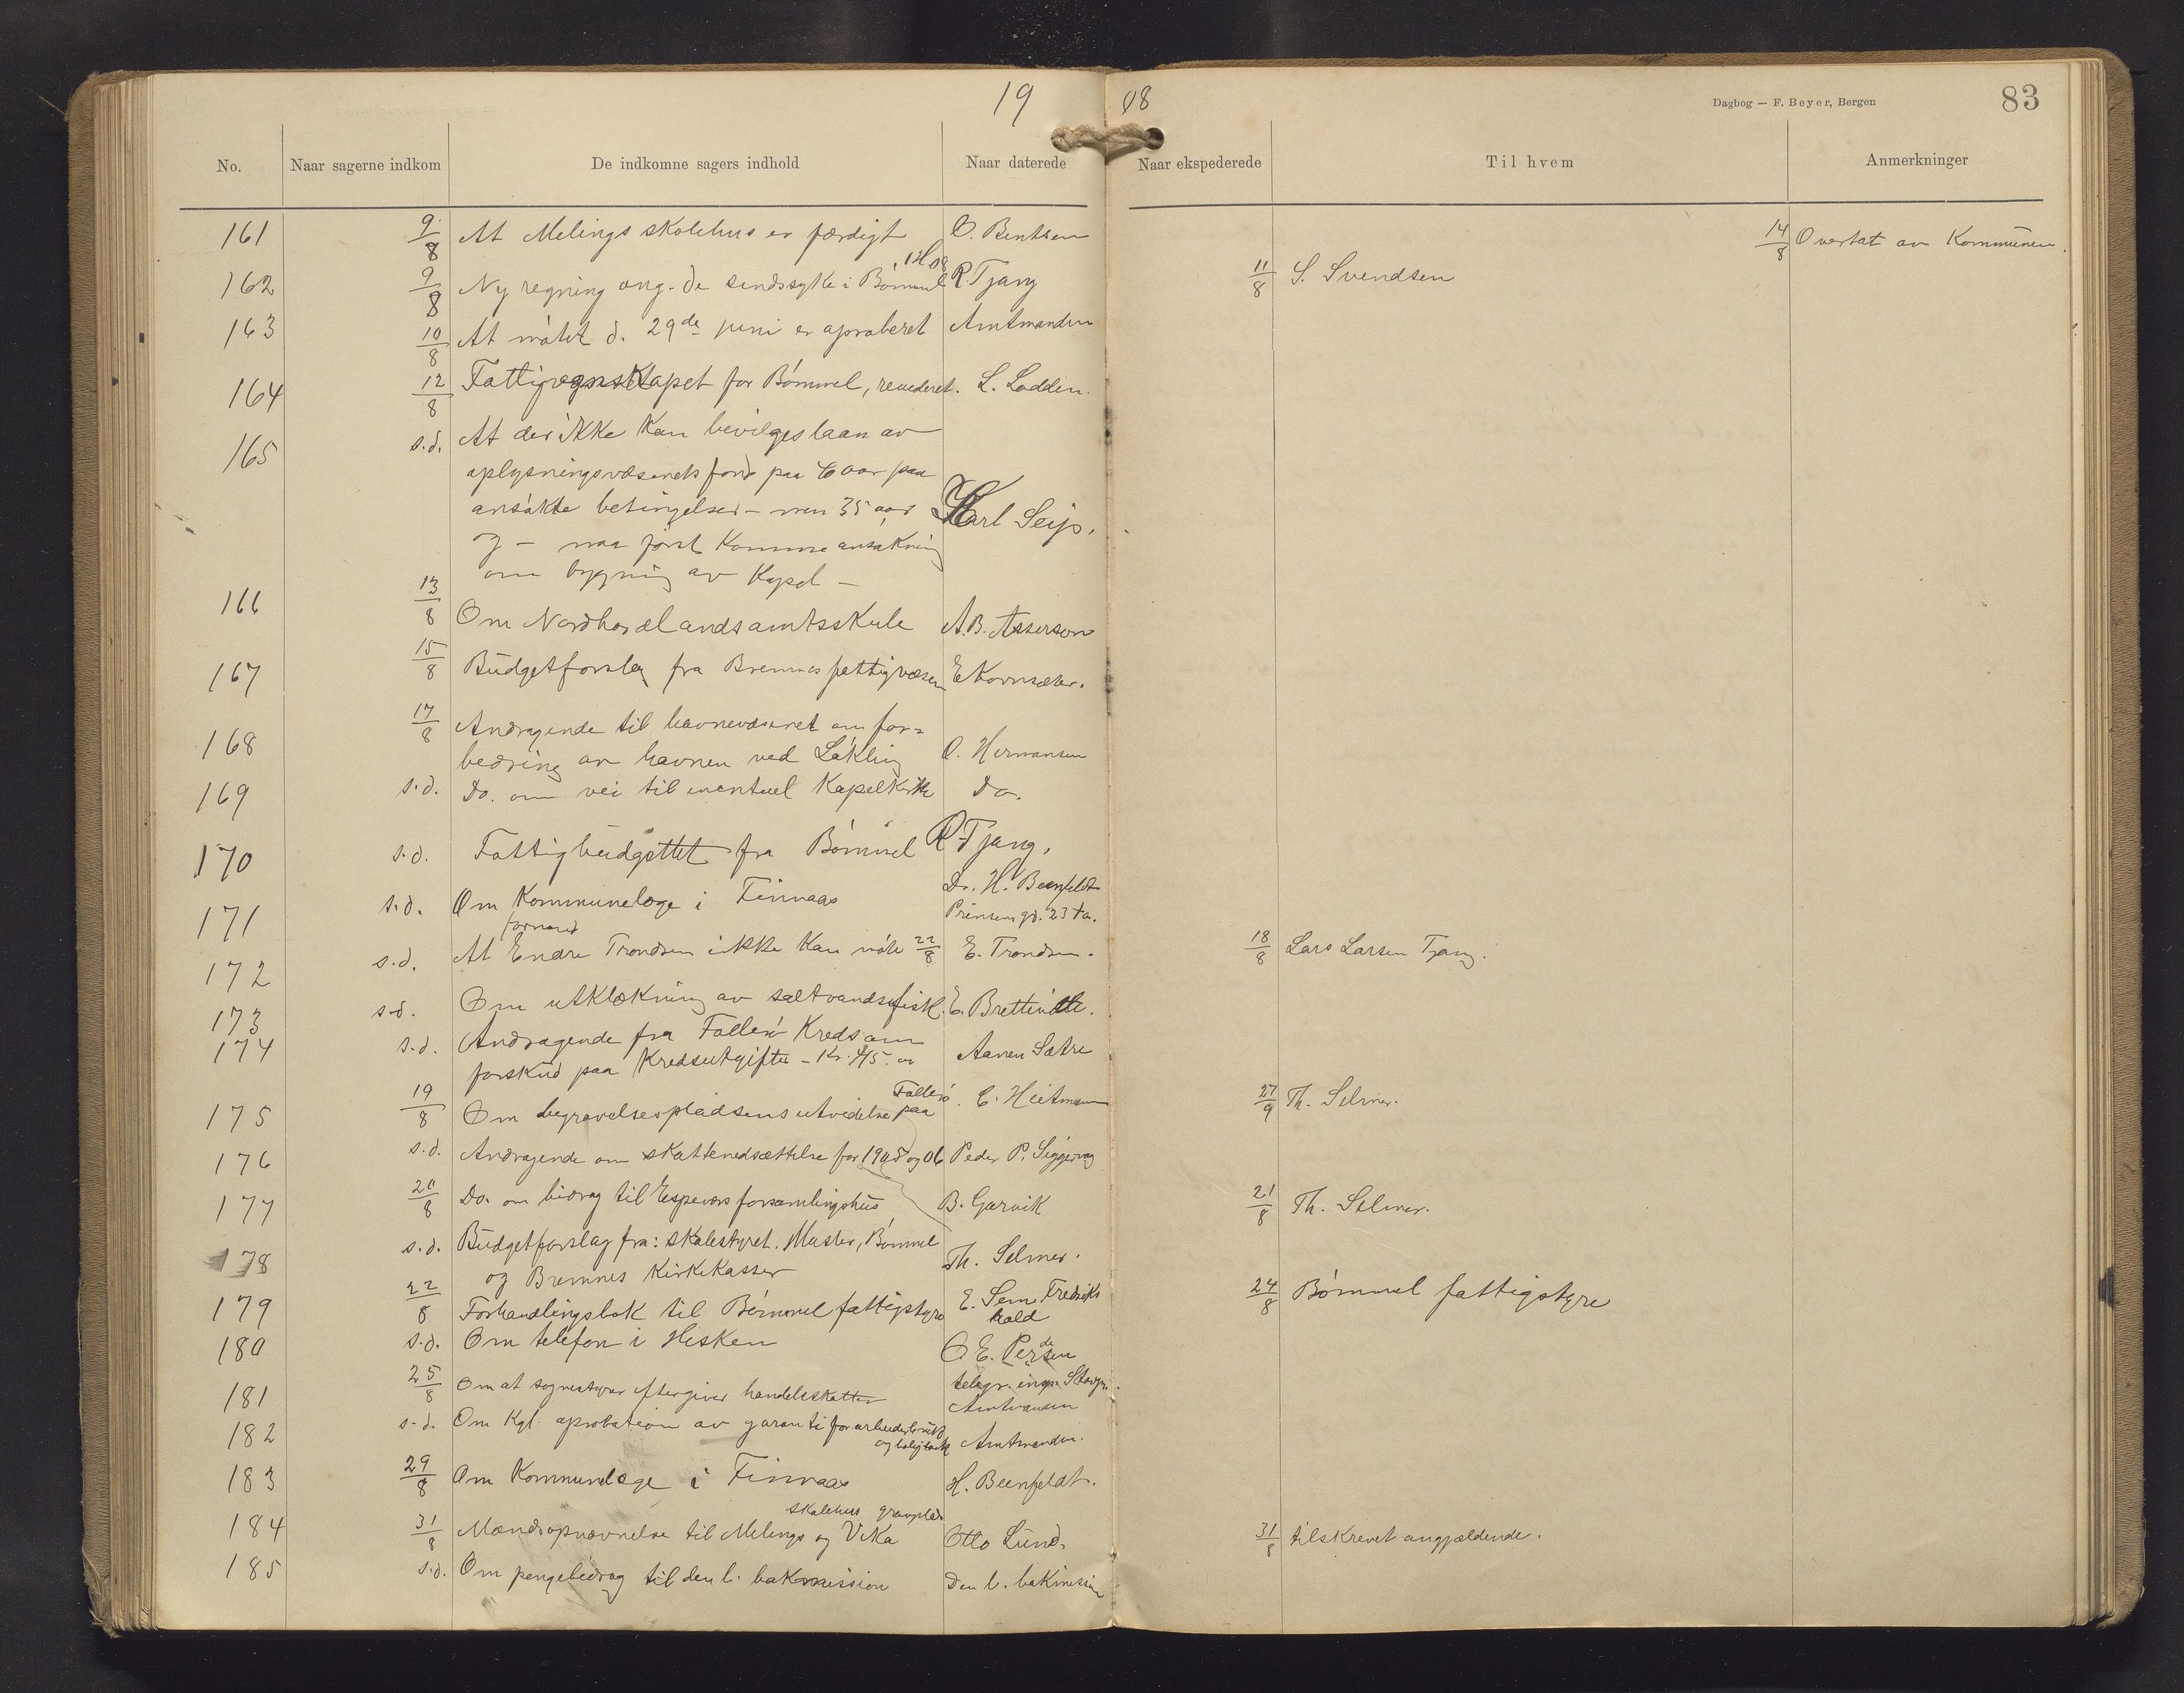 19 08
Dagbog – F. Beyer, Bergen
83
No. Naar sagerne indkom De indkomne sagers indhold Naar daterede Naar ekspederede Til hvem Anmerkninger
161 9/8 At Melings skolehus er færdigt O. Bentsen 14/8 Overtat av Kommunen.
162 9/8 Ny regning ang. de sindssyke i Bømmel R. Tjang 11/8 S. Svendsen
163 10/8 At møtet d. 29de juni er aproberet Amtmanden
164 12/8 Fattigregnskapet for Bømmel, revederet. L. Lodden.
165 s.d. At der ikke kan bevilges laan av
oplysningsvæsenets fond paa 60 aar paa
ansøkte betingelser – men 35 aar Karl Seip.
og – maa først komme ansøkning
om bygning av Kapel –
166 13/8 Om Nordhordlands amtsskule A.B. Asserson
167 15/8 Budgetforslag fra Bremnes fattigvæsen E Kornsæter.
168 17/8 Andragende til havnevæsenet om for=
bedring av havnen ved Løkling O. Hermansen
169 s.d. Do. om vei til eventuel Kapelkirke Do.
170 s.d. Fattigbudgettet fra Bømmel R. Tjang.
171 s.d. Om Kommunelæge i Finnaas Dr. H. Beenfeldt
Prinsens gd. 23
formand
172 s.d. At Endre Trondsen ikke kan møte 22/8 E. Trondsen. 18/8 Lars Larsen Tjang.
173 s.d. Om utklækning av saltvandsfisk. E.
174 s.d. Andragende fra Folderø Kreds om
forskud paa Kredsutgifter – Kr. 45.00 Aanen Sætre
175 19/8 Om begravelsespladsens utvidelse paa Folderø. C. Heitmann 27/9 Th. Selmer.
176 s.d. Andragende om skattenedsættelse for 1905 og 06 Peder P. Siggervåg
177 20/8 Do. om bidrag til Espevær forsamlingshus B. Gjærvik 21/8 Th. Selmer.
178 s.d. Budgetforslag fra: skolestyret, Moster, Bømmel
og Bremnes Kirkekasser Th. Selmer.
179 22/8 Forhandlingsbok til Bømmel fattigstyre E. Sem Fredriks
hald 24/8 Bømmel fattigstyre
180 s.d. Om telefon i Hisken O. E. Pedersen
telegr. insp.
181 25/8 Om at sognestyrer eftergiver handelsskatter Amtmanden
182 s.d. Om Kgl. aprobation av garanti for arbeiderbruk
og boligbank Amtmanden.
183 29/8 Om Kommunelæge i Finnaas H. Beenfeldt.
skolehus gravplads
184 31/8 Mændsopnævnelse til Melings og Vika Otto Lund. 31/8 tilskrevet angjældende.
185 s.d. Om pengebidrag til den l. bakmission Den l. bakmission